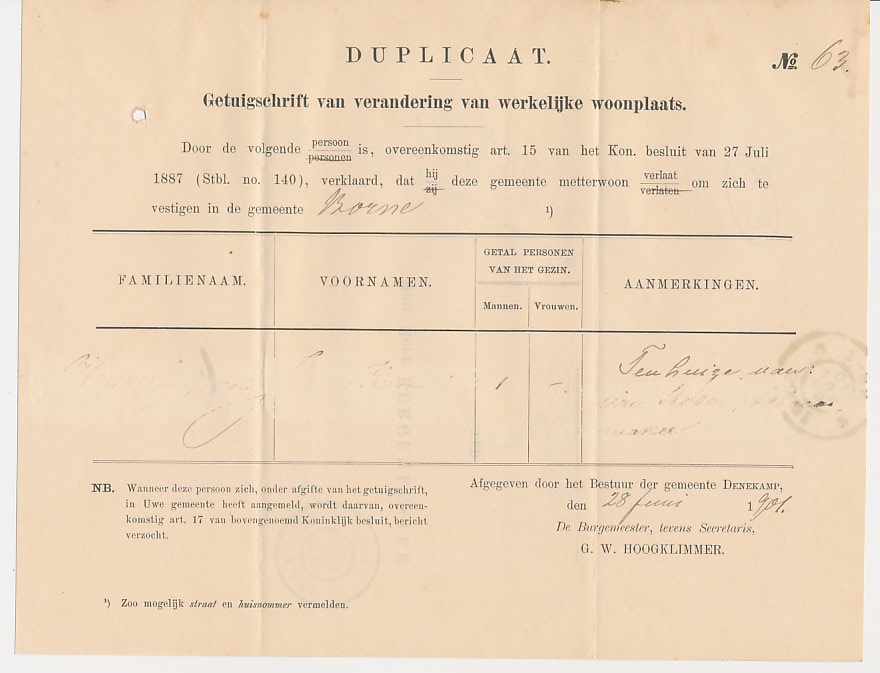 DUPLICAAT.
No. 63.
Getuigschrift van verandering van werkelijke woonplaats.
Door de volgende persoon personen is, overeenkomstig art. 15 van het Kon. besluit van 27 Juli
1887 (Stbl. no. 140), verklaard, dat hij zij deze gemeente metterwoon verlaat verlaten om zich te
vestigen in de gemeente Borne 1)
FAMILIENAAM. VOORNAMEN. GETAL PERSONEN VAN HET GEZIN. AANMERKINGEN.
Mannen. Vrouwen.
1 – Ten huize van:
NB. Wanneer deze persoon zich, onder afgifte van het getuigschrift,
in Uwe gemeente heeft aangemeld, wordt daarvan, overeen-
komstig art. 17 van bovengenoemd Koninklijk besluit, bericht
verzocht.
Afgegeven door het Bestuur der gemeente DENEKAMP,
den 28 Juni 1901.
De Burgemeester, tevens Secretaris,
G. W. HOOGKLIMMER.
1) Zoo mogelijk straat en huisnommer vermelden.